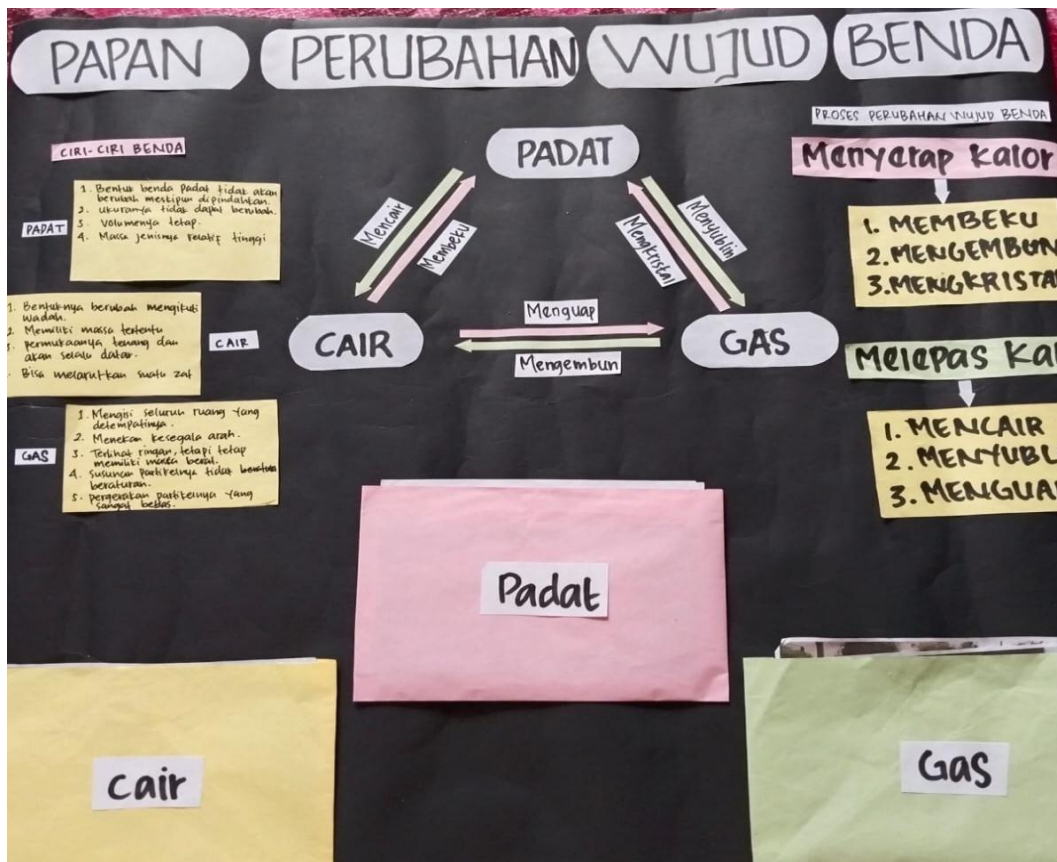 PAPAN PERUBAHAN WUJUD BENDA
CIRI-CIRI BENDA
PADAT
1. Bentuk benda Padat tidak akan
berubah meskipun dipindahkan.
2. ukuranya tidak dapat berubah.
3. Volumenya tetap.
4. Massa jenisnya relatif tinggi
1. Bentuknya berubah mengikuti
wadah.
2. Memiliki massa tertentu
3. Permukaanya tenang dan
akan selalu datar.
. Bisa melarutkan suatu zat
CAIR
GAS
1. Mengisi seluruh ruang yang
ditempatinya.
2. Menekan kesegala arah.
3. Terlihat ringan, tetapi tetap
memiliki massa berat.
4. Susunan partikelnya tidak
beraturan.
5. Pergerakan partikelnya yang
sangat bebas.
PADAT
Mencair
Membeku
Menyublin
Mengkristal
CAIR
Menguap
Mengembun
GAS
PROSES PERUBAHAN WUJUD BENDA
Menyerap Kalor
1. MEMBEKU
2. MENGEMBUN
3. MENGKRISTA
Melepas Ka
1. MENCAIR
2. MENYUBL
3. MENGUA
Padat
Cair
Gas